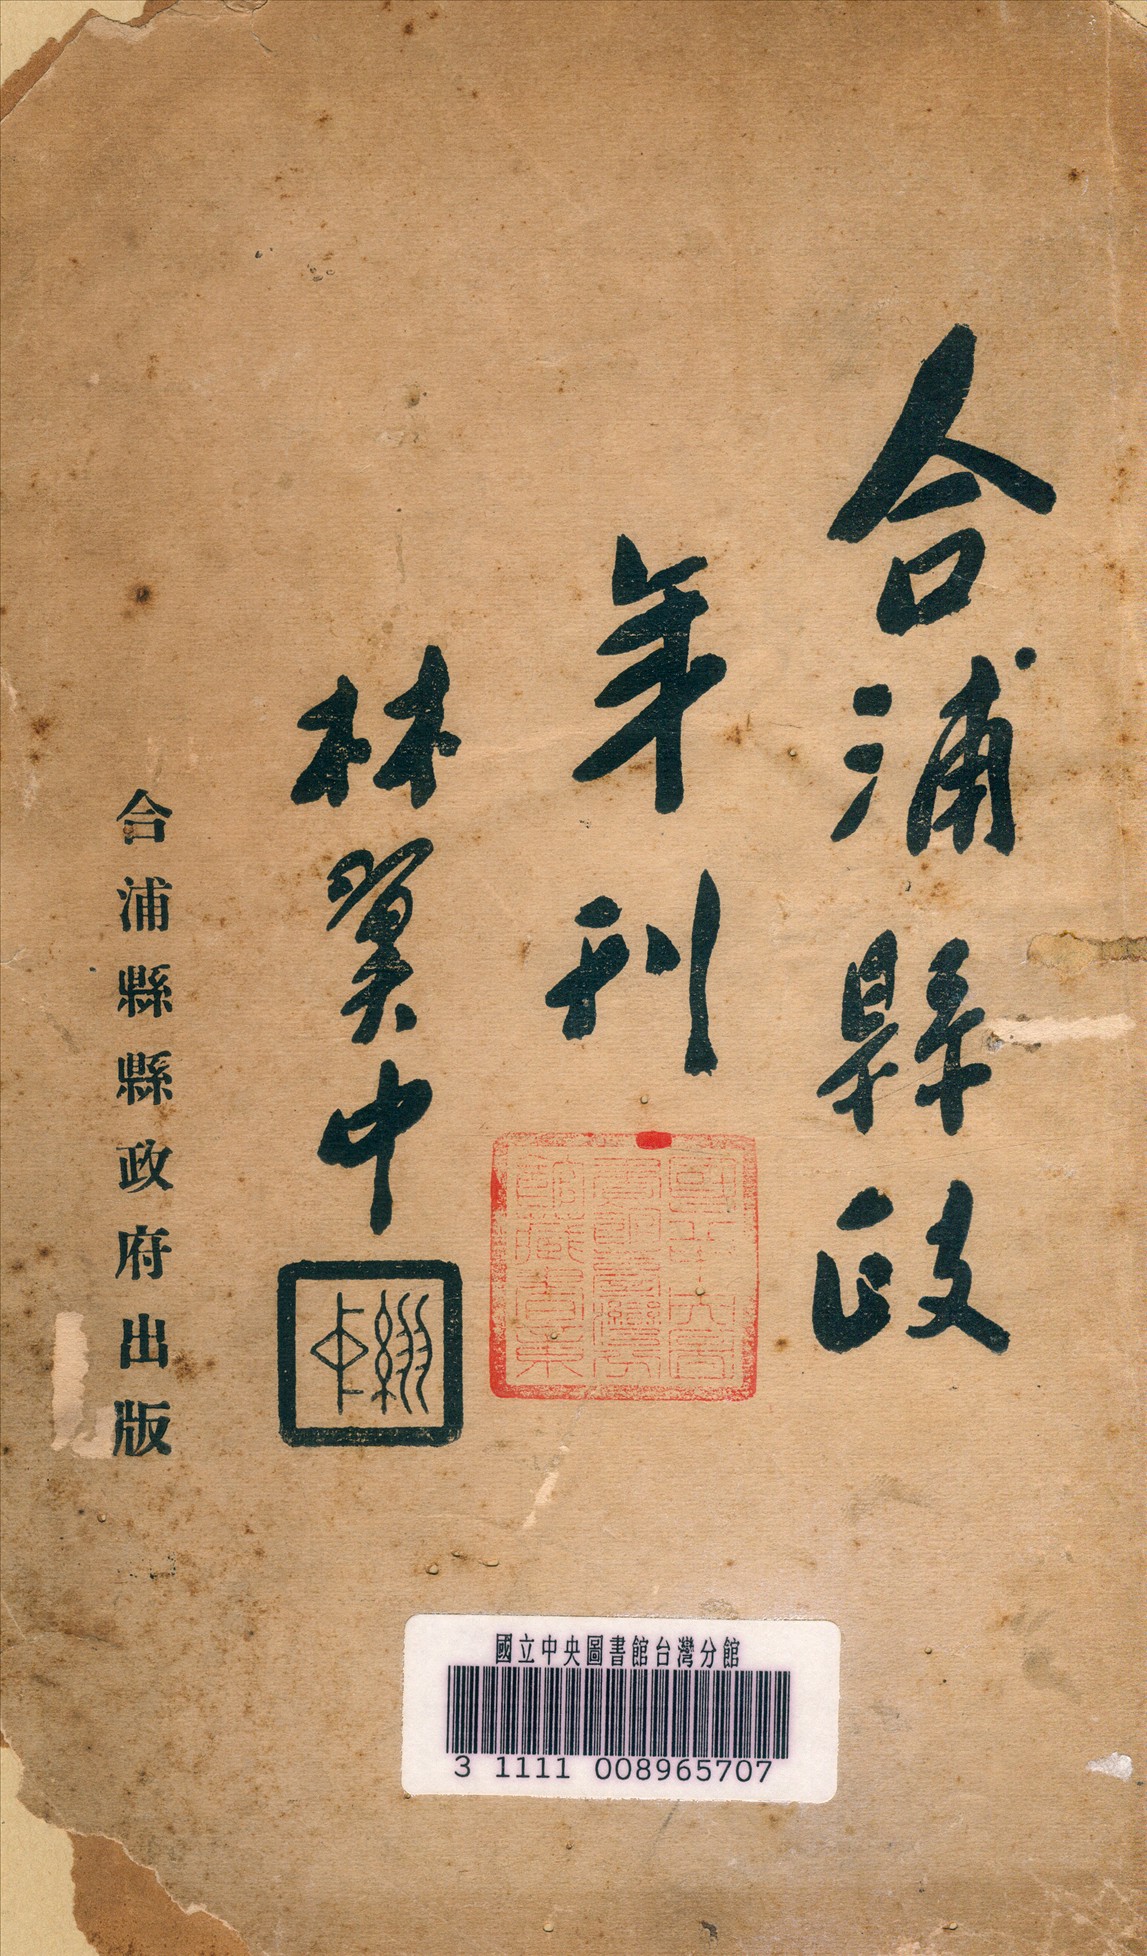 合浦縣政
年刊
林翼中
合浦縣縣政府出版
國立中央圖書館台灣分館
3 1111 008965707